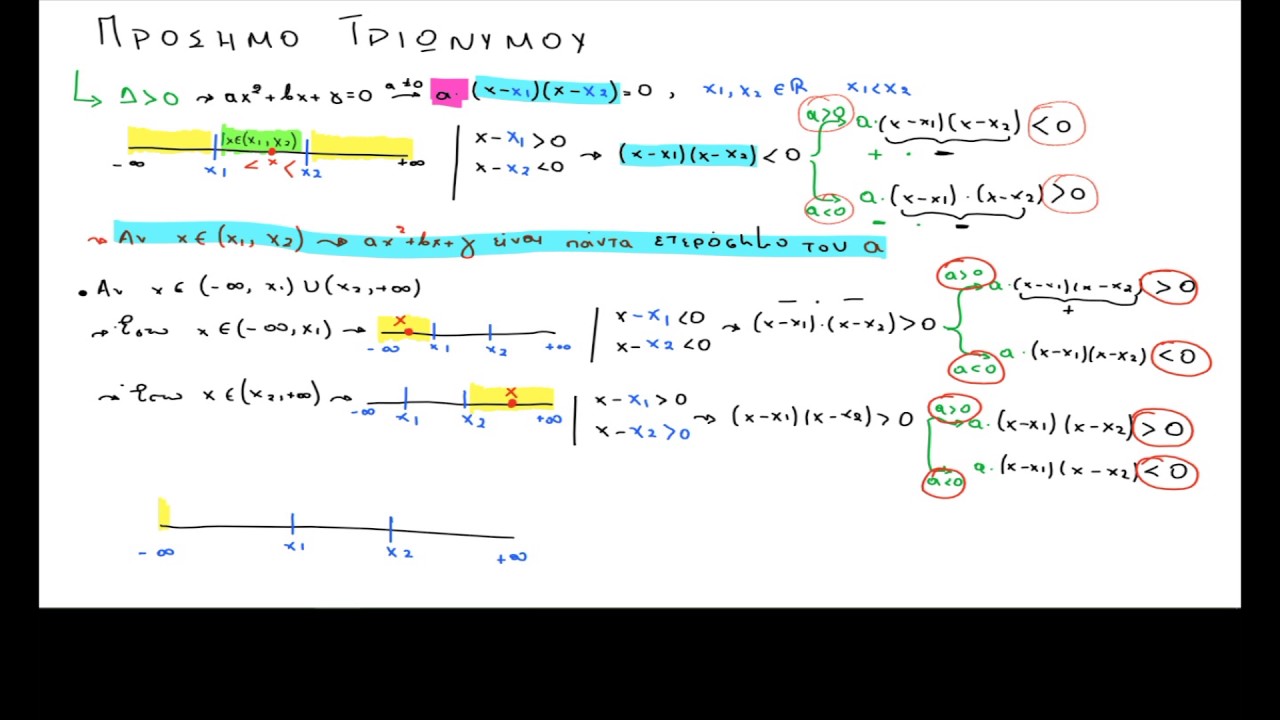 ΠΡΟΣΗΜΟ ΤΡΙΩΝΥΜΟΥ
↳ Δ>0 → αx²+βx+γ=0 α≠0 → α·(x-x₁)(x-x₂)=0, x₁,x₂ ∈ℝ x₁<x₂
x∈(x₁,x₂)
-∞ x₁ < x < x₂ +∞
x-x₁>0
x-x₂<0
→ (x-x₁)(x-x₂)<0
α>0 α·(x-x₁)(x-x₂) <0
+ · -
α<0 α·(x-x₁)·(x-x₂) >0
- · -
→ Αν x∈(x₁,x₂) → αx²+βx+γ είναι πάντα ετερόσημο του α
• Αν x∈(-∞,x₁)∪(x₂,+∞)
→ Έστω x∈(-∞,x₁) →
x
-∞ x₁ x₂ +∞
x-x₁<0
x-x₂<0
- · -
→ (x-x₁)·(x-x₂)>0
α>0 α·(x-x₁)(x-x₂) >0
+
α<0 α·(x-x₁)(x-x₂) <0
→ Έστω x∈(x₂,+∞) →
x
-∞ x₁ x₂ +∞
x-x₁>0
x-x₂>0
→ (x-x₁)(x-x₂)>0
α>0 α·(x-x₁)(x-x₂) >0
α<0 α·(x-x₁)(x-x₂) <0
-∞ x₁ x₂ +∞